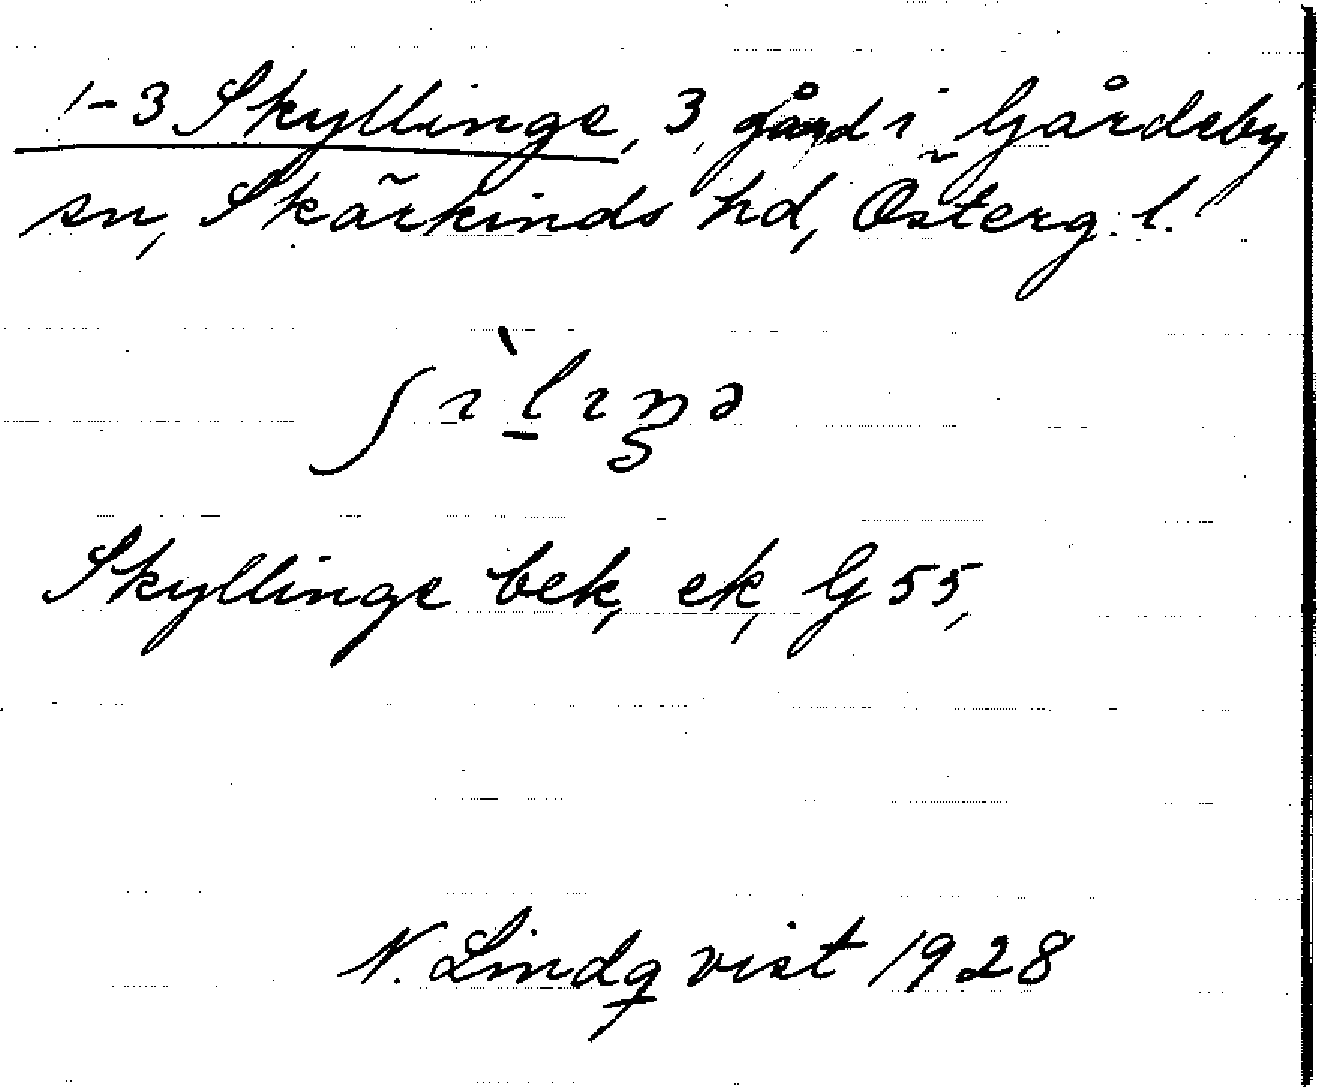 1-3 Skyllinge, 3 gård i Gårdeby
sn, Skärkinds hd, Österg. l.
ʃɪ̀l̠ɪŋə
Skyllinge bek, ek, G 55,
N. Lindqvist 1928